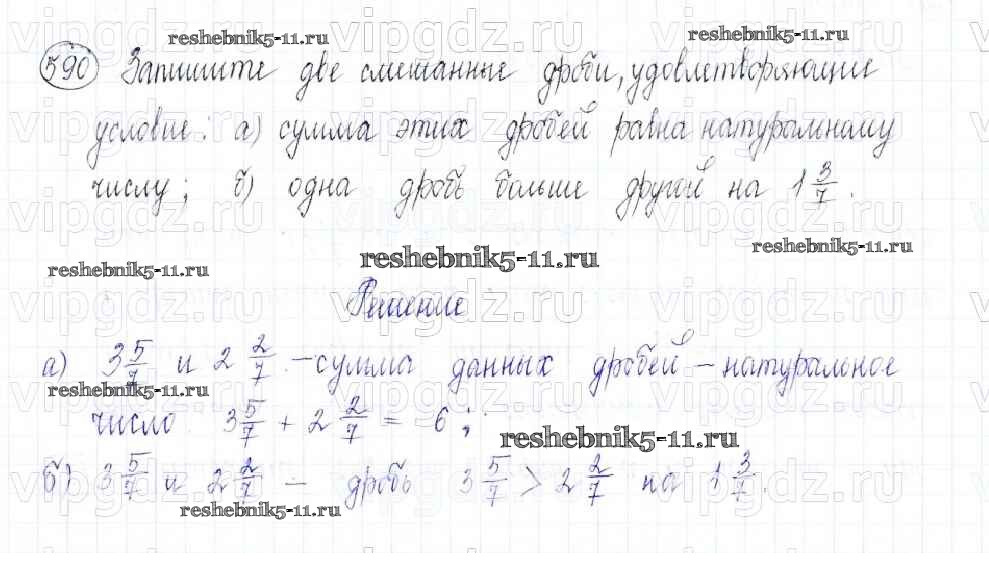 reshebnik5-11.ru reshebnik5-11.ru
590 Запишите две смешанные дроби, удовлетворяющие
условие: а) сумма этих дробей равна натуральному
числу; б) одна дробь больше другой на 1 3/7.
reshebnik5-11.ru reshebnik5-11.ru reshebnik5-11.ru
Решение
а) 3 5/7 и 2 2/7 - сумма данных дробей - натуральное
reshebnik5-11.ru
число 3 5/7 + 2 2/7 = 6;
reshebnik5-11.ru
б) 3 5/7 и 2 2/7 - дробь 3 5/7 > 2 2/7 на 1 3/7.
reshebnik5-11.ru
vipgdz.ru